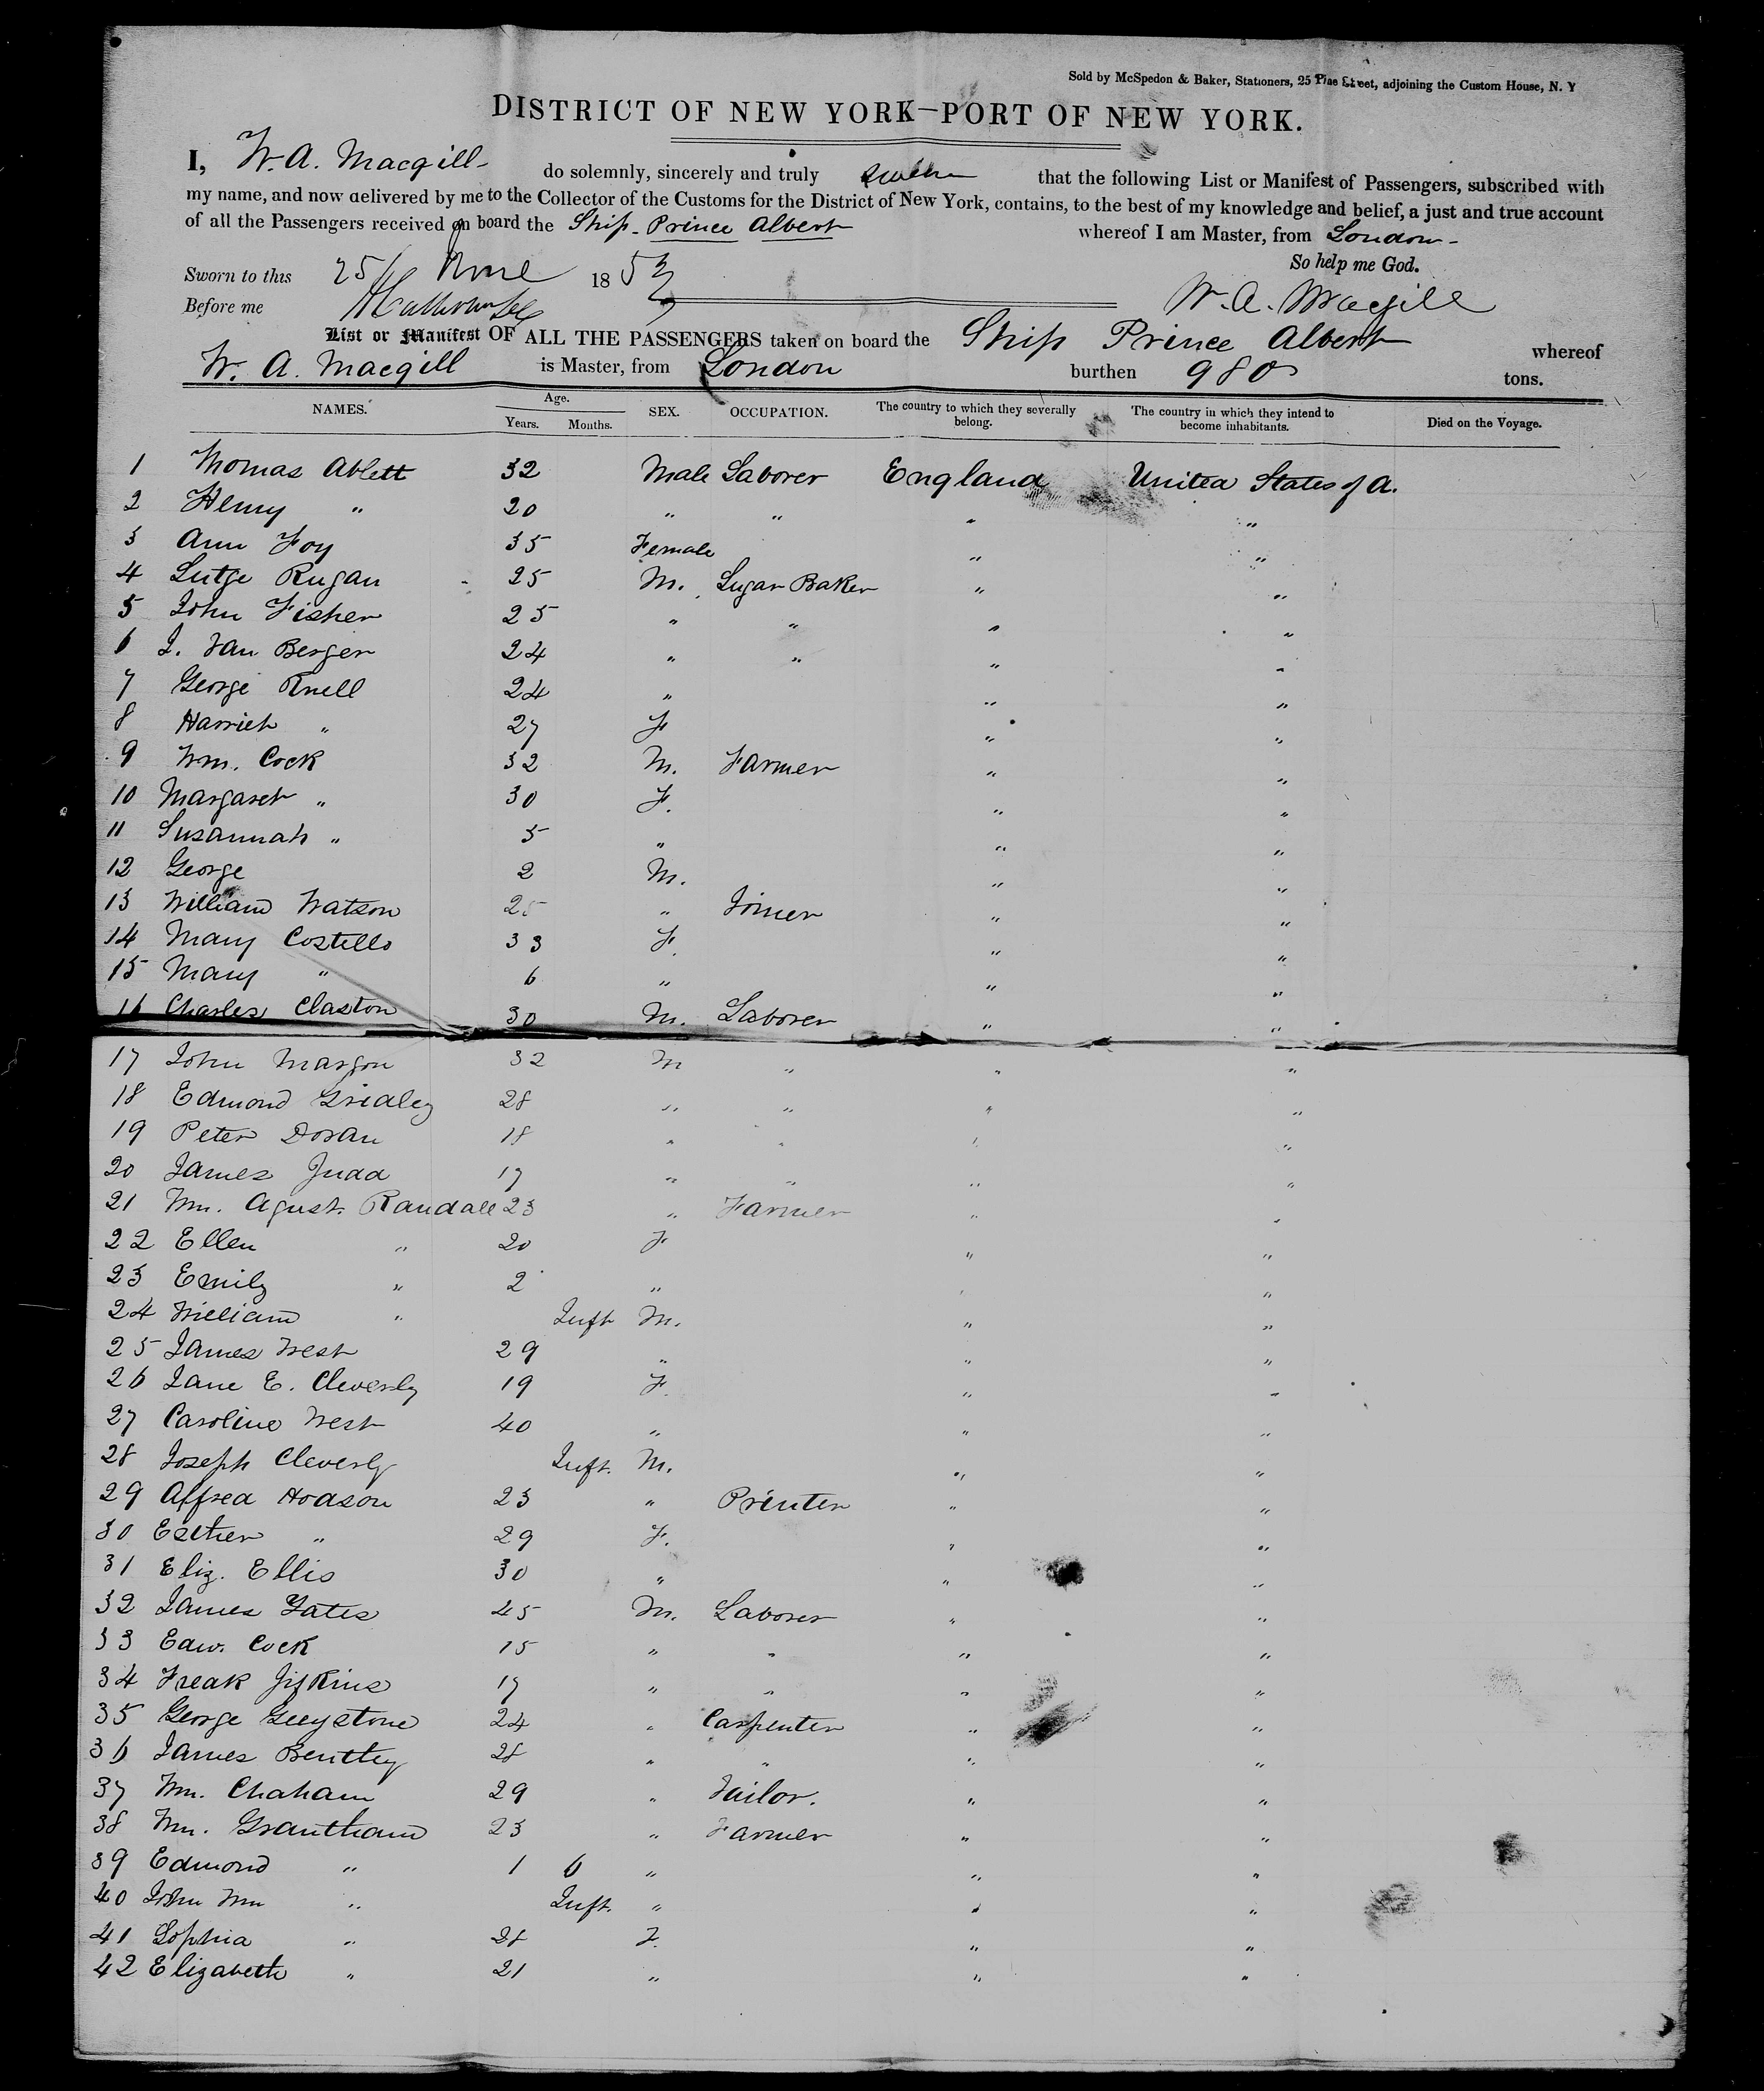 Sold by McSpedon & Baker, Stationers, 25 Pine Street, adjoining the Custom House, N. Y
DISTRICT OF NEW YORK—PORT OF NEW YORK.
I, W. A. Macgill do solemnly, sincerely and truly swear that the following List or Manifest of Passengers, subscribed with
my name, and now delivered by me to the Collector of the Customs for the District of New York, contains, to the best of my knowledge and belief, a just and true account
of all the Passengers received on board the Ship Prince Albert whereof I am Master, from London
So help me God.
Sworn to this 25th June 1853
Before me W. A. Macgill
List or Manifest OF ALL THE PASSENGERS taken on board the Ship Prince Albert whereof
W. A. Macgill is Master, from London burthen 980 tons.
NAMES. Age. Years. Months. SEX. OCCUPATION. The country to which they severally belong. The country in which they intend to become inhabitants. Died on the Voyage.
1 Thomas Ablett 32 Male Laborer England United States of A.
2 Henry " 20 " " " "
3 Ann Foy 35 Female " "
4 Lutge Rugan 25 M. Sugar Baker " "
5 John Fisher 25 " " " "
6 J. Van Bergen 24 " " " "
7 George Knell 24 " " "
8 Harriet " 27 F " "
9 Wm. Cock 32 M. Farmer " "
10 Margaret " 30 F. " "
11 Susannah " 5 " " "
12 George 2 M. " "
13 William Watson 25 " Joiner " "
14 Mary Costello 33 F. " "
15 Mary " 6 " " "
16 Charles Claxton 30 M. Laborer " "
17 John Margon 32 M " " "
18 Edmond Gridley 28 " " " "
19 Peter Doran 18 " " " "
20 James Judd 17 " " " "
21 Wm. Agust. Randall 23 " Farmer " "
22 Ellen " 20 F " "
23 Emily " 2 " " "
24 William " Inft M. " "
25 James West 29 " " "
26 Jane E. Cleverly 19 F. " "
27 Caroline West 40 " " "
28 Joseph Cleverly Inft. M. " "
29 Alfred Hodson 23 " Printer " "
30 Esther " 29 F. " "
31 Eliz. Ellis 30 " " "
32 James Yates 45 M. Laborer " "
33 Edw. Cock 15 " " " "
34 Fredk Jifkins 17 " " " "
35 George Greystone 24 " Carpenter " "
36 James Bentley 28 " " " "
37 Wm. Chaham 29 " Tailor. " "
38 Wm. Grantham 23 " Farmer " "
39 Edmond " 1 6 " " "
40 John Wm " Inft. " " "
41 Sophia " 28 F. " "
42 Elizabeth " 21 " " "